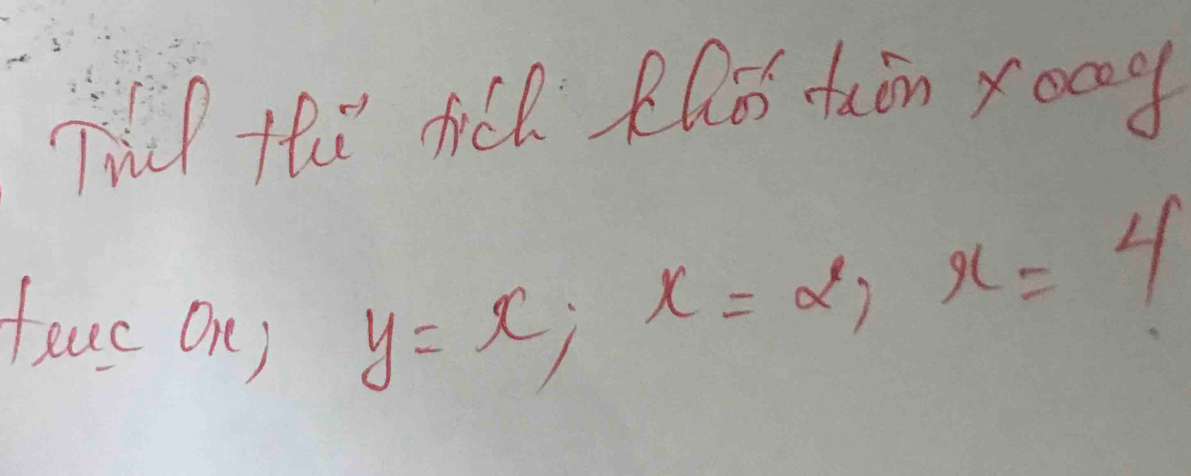 Tính thể tích khối tròn xoay
trục Ox; y = x; x = 2; x = 4